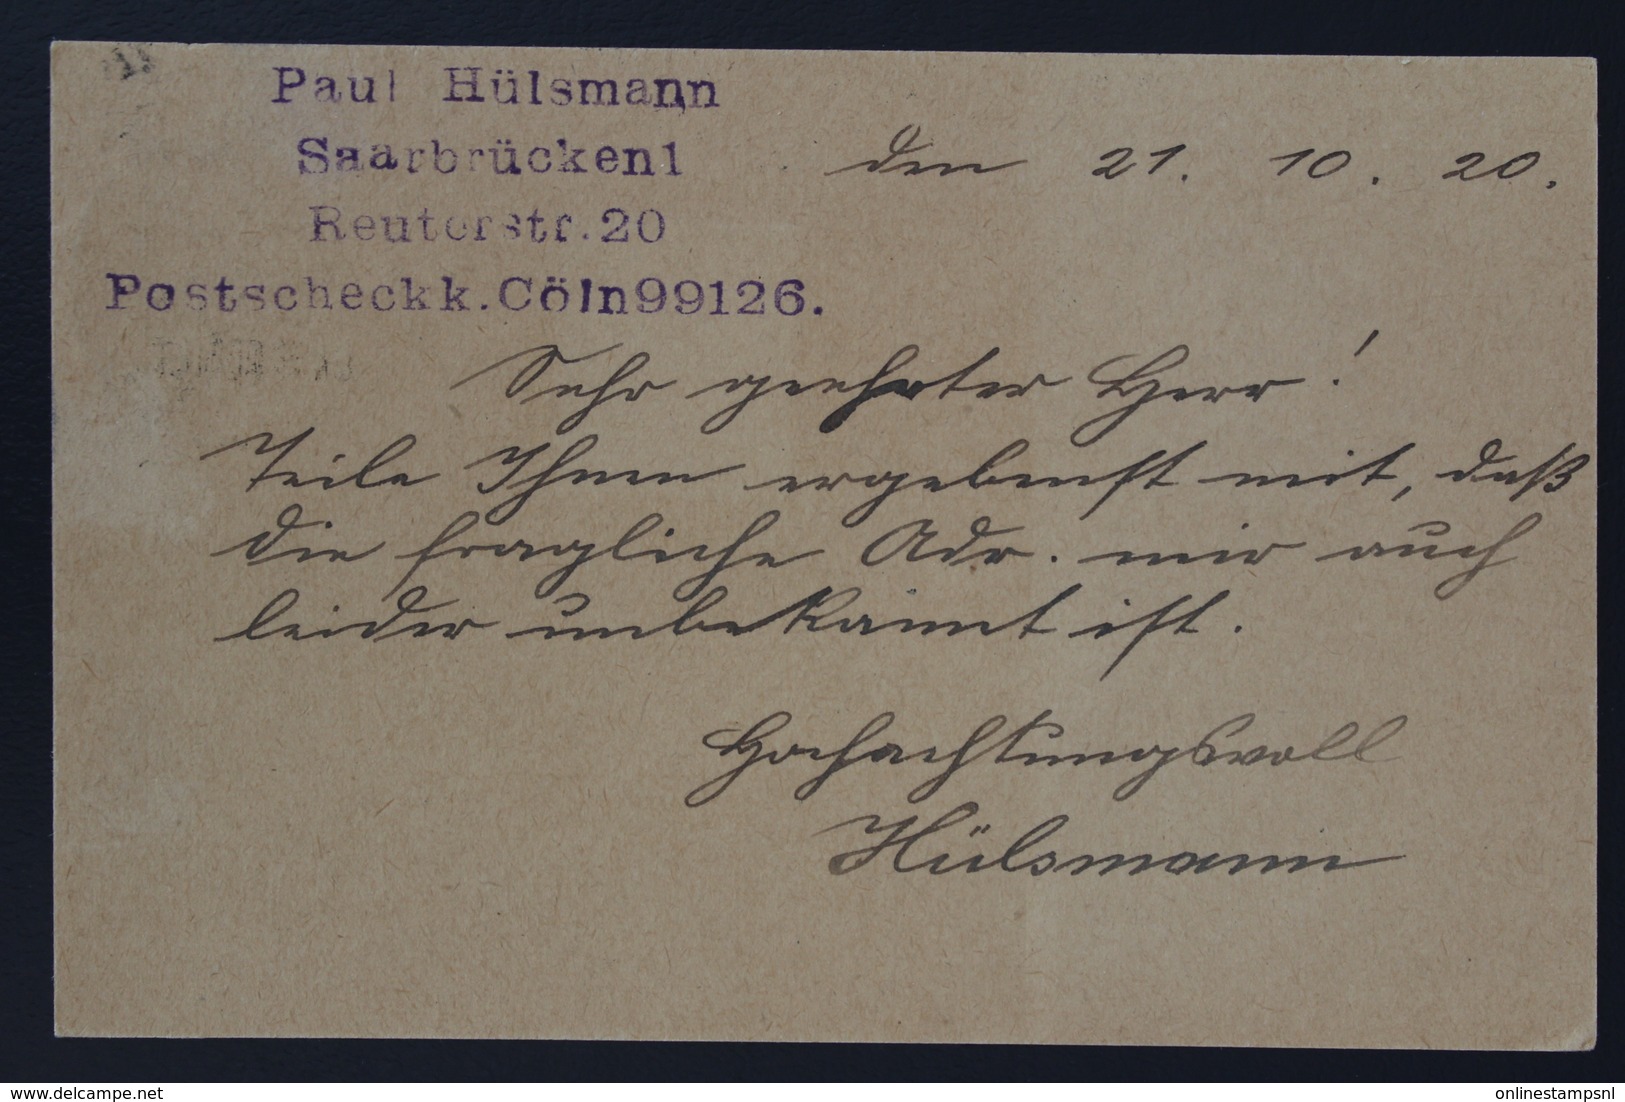 Paul Hülsmann
Saarbrücken1
den 21. 10. 20.
Reuterstr.20
Postscheckk.Cöln99126.
Sehr geehrter Herr!
Teile Ihnen ergebenst mit, daß
die fragliche Adr. mir auch
leider unbekannt ist.
Hochachtungsvoll
Hülsmann
delcampe.net
onlinestampsnl